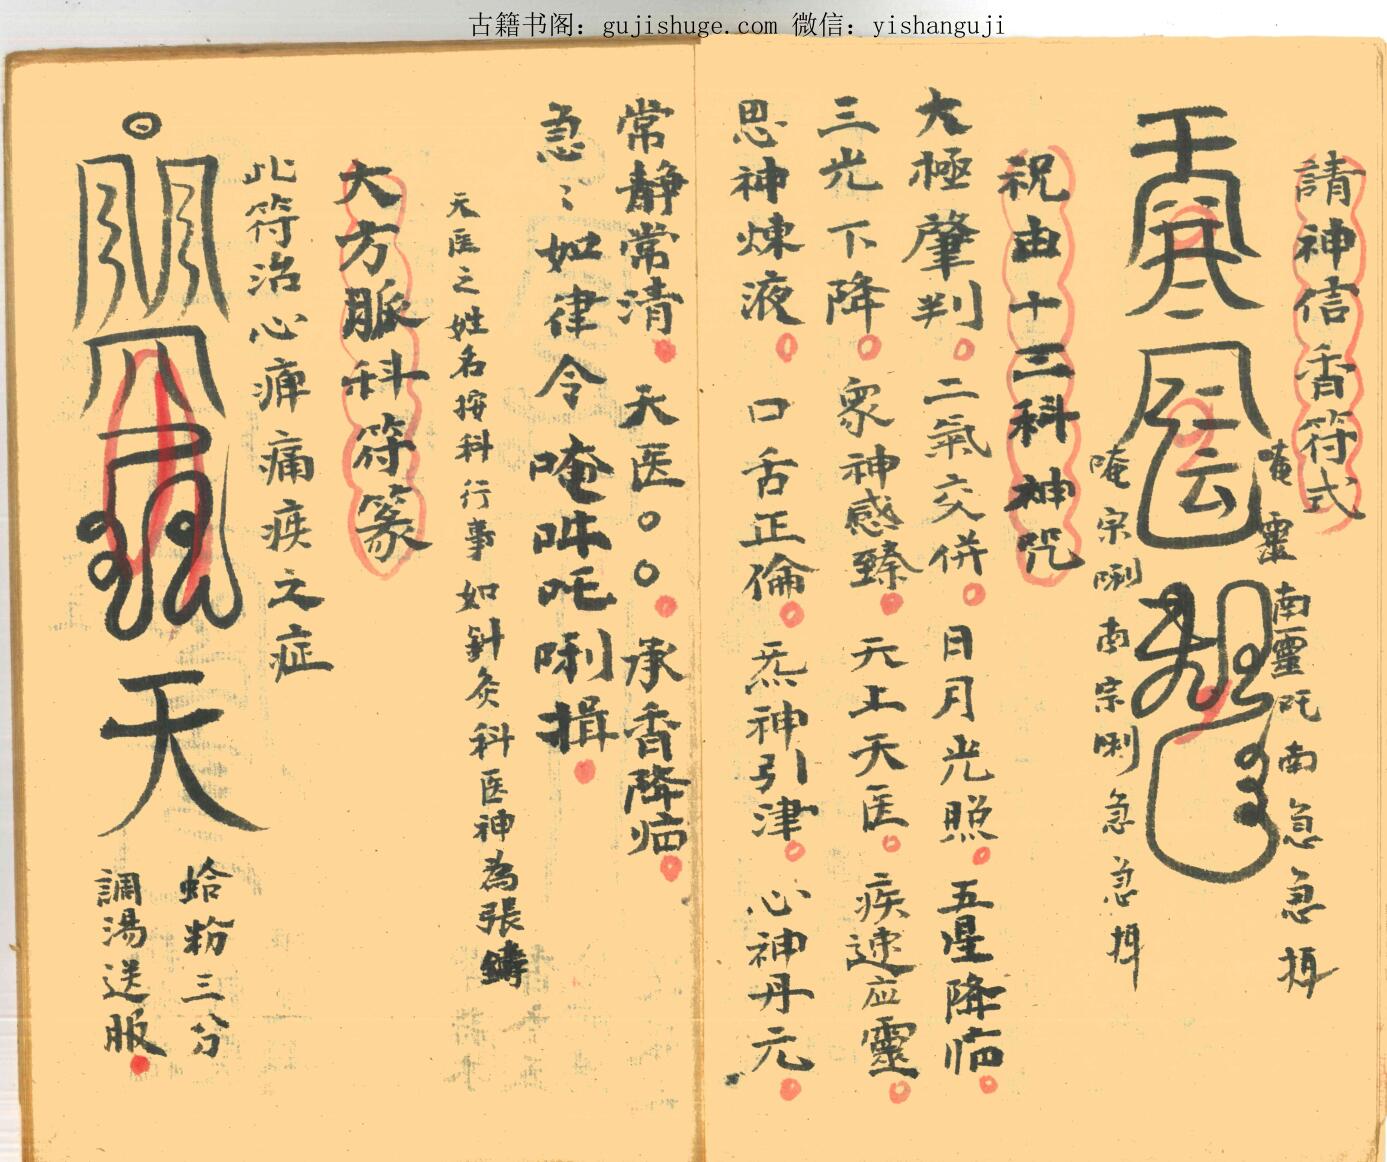 古籍书阁：gujishuge.com 微信：yishanguji
請神信香符式
唵 靈 南靈吒南急急揖
唵宗唎南宗唎急急揖
祝由十三科神咒
大極肇判。二氣交併。日月光照。五星降临。
三光下降。衆神感臻。天上天医。疾速应靈。
思神煉液。口舌正倫。炁神引津。心神丹元。
常静常清。天医○○。承香降临。
急〻如律令唵吽吒唎揖。
天医之姓名按科行事如針灸科医神為張鑄
大方脈科符篆
此符治心痺痛疾之症
天
蛤粉三分
調湯送服。